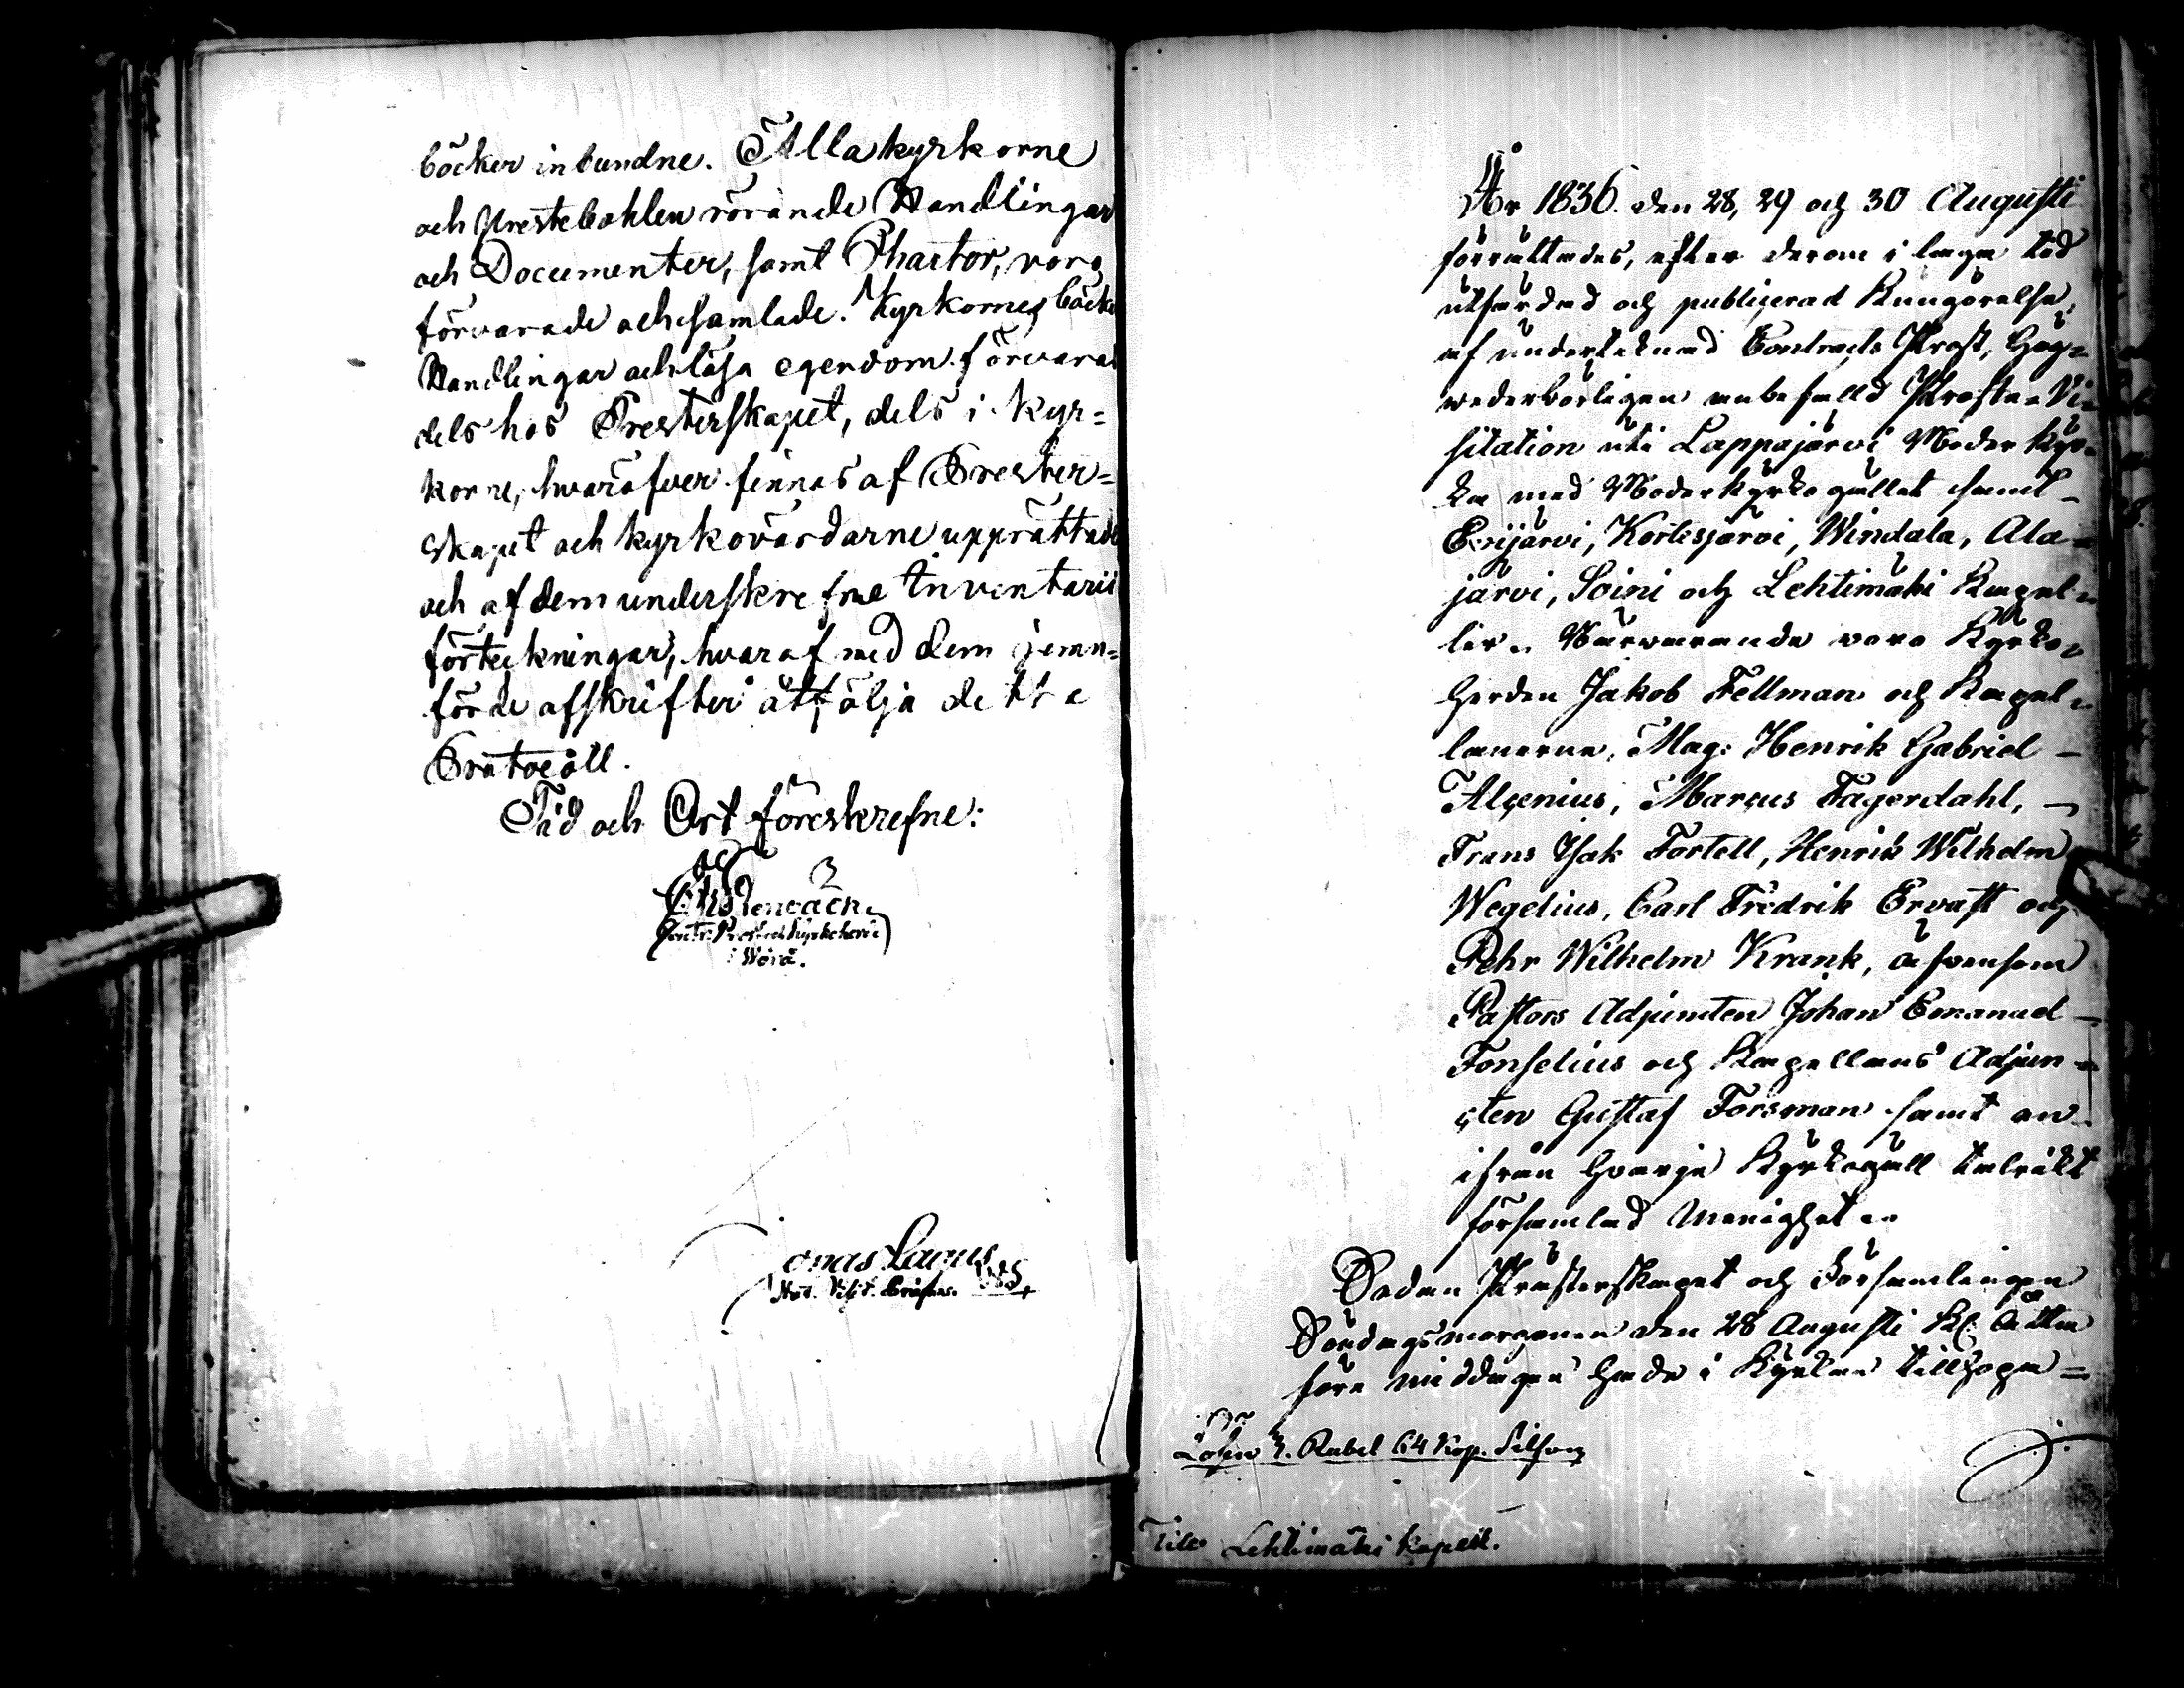 böcker inbundne. Alla kyrkorne
och Prestebohlen rörande Handlingar
och Documenter, samt Chartor, voro
förvarade och samlade. Kyrkornes böcker
Handlingar och lösa egendom förvaras
dels hos Presterskapet, dels i Kyr=
korne, hvaröfver finnas af Prester=
skapet och kyrkovärdarne upprättade
och af dem underskrefne Inventarii
förteckningar, hvaraf med dem jemn=
förde afskrifter åtfölja detta
Protocoll.
Tid och Ort föreskrefne:
Stenbäck
Contr: Prost och kyrkoherde
i Wörå.
Jonas Lagus
Not. Visit.
År 1836. den 28, 29 och 30 Augusti
förrättades, efter derom i laga tid
utfärdad och publicerad Kungörelse,
af undertecknad Contracts Prost, Hög=
vederbörligen anbefalld Prosta-Vi=
sitation uti Lappajärvi Moder kyr=
ka med Moderkyrkogället samt
Evijärvi, Kortesjärvi, Windala, Ala=
järvi, Soini och Lehtimäki Kapel=
ler. Närvarande voro Kyrko=
herden Jakob Fellman och Kapel=
lanerne, Mag: Henrik Gabriel
Alcenius, Marcus Fagerdahl,
Frans Isak Fortell, Henrik Wilhelm
Wegelius, Carl Fredrik Ervast och
Pehr Wilhelm Krank, äfvensom
Pastors Adjuncten Johan Emanuel
Fonselius och Kapellans Adjun=
cten Gustaf Forsman samt en
ifrån hvarje Kyrkogäll talrikt
församlad menighet.
Sedan Prästerskapet och Församlingen
Söndagsmorgonen den 28 Augusti Kl: Åtta
före middagen hade i Kyrkan
Lösen 3. Rubel 64 Kop. Silfver
Till Lehtimäki kapell.